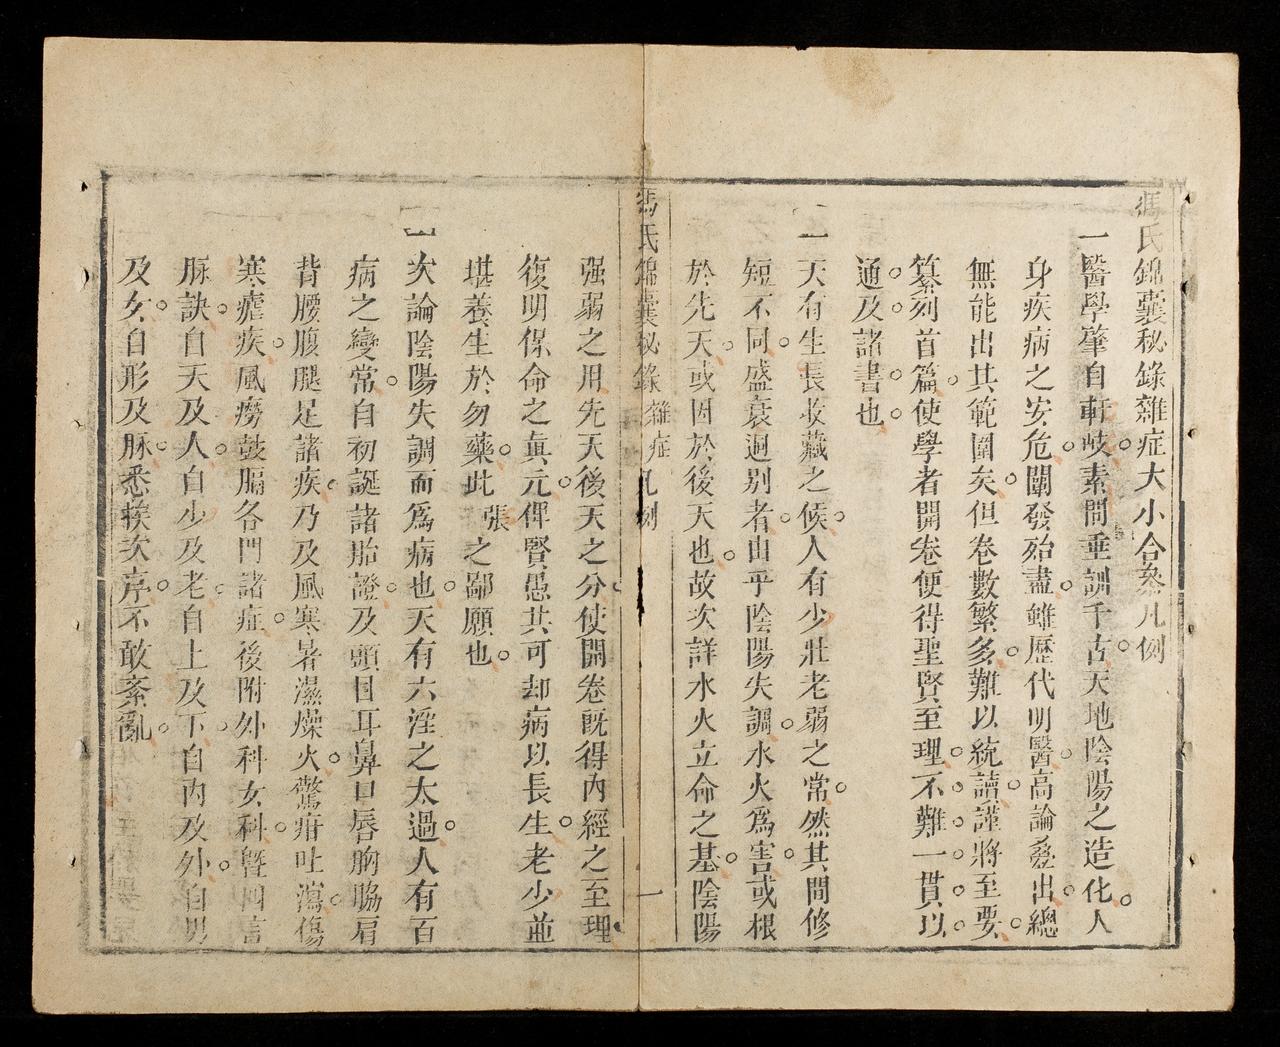 馮氏錦囊秘錄雜症大小合參凡例
一醫學肇自軒岐素問垂訓千古天地陰陽之造化人
身疾病之安危闡發殆盡雖歷代明醫高論叠出總
無能出其範圍矣但卷數繁多難以統讀謹將至要
纂列首篇使學者開卷便得聖賢至理不難一貫以
通及諸書也
一天有生長收藏之候人有少壯老弱之常然其間修
短不同盛衰迥別者由乎陰陽失調水火為害或根
於先天或因於後天也故次詳水火立命之基陰陽
馮氏錦囊秘錄 雜症 凡例 一
强弱之用先天後天之分使開卷既得內經之至理
復明保命之真元俾賢愚共可却病以長生老少並
堪養生於勿藥此張之鄙願也
一次論陰陽失調而為病也天有六淫之太過人有百
病之變常自初誕諸胎證及頭目耳鼻口唇胸脇肩
背腰腹腿足諸疾乃及風寒暑濕燥火驚疳吐瀉傷
寒瘧疾風癆鼓膈各門諸症後附外科女科曁四言
脉訣自天及人自少及老自上及下自內及外自男
及女自形及脉悉挨次序不敢紊亂